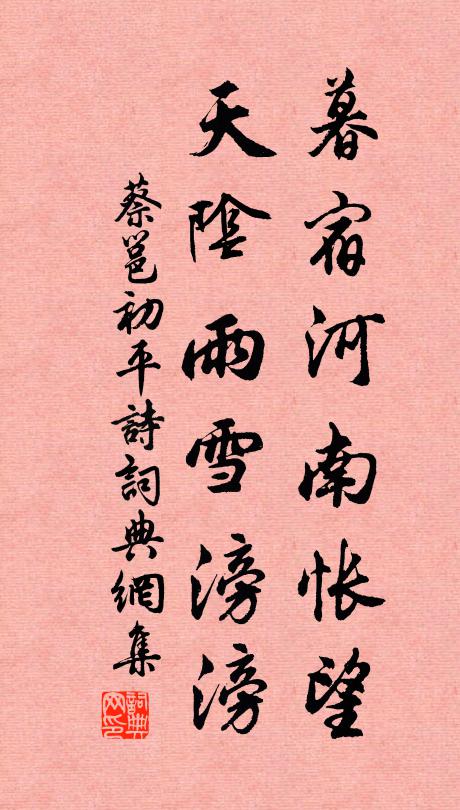 暮宿河南悵望
天陰雨雪滂滂
蔡邕初平詩詞典網集
詞典網印